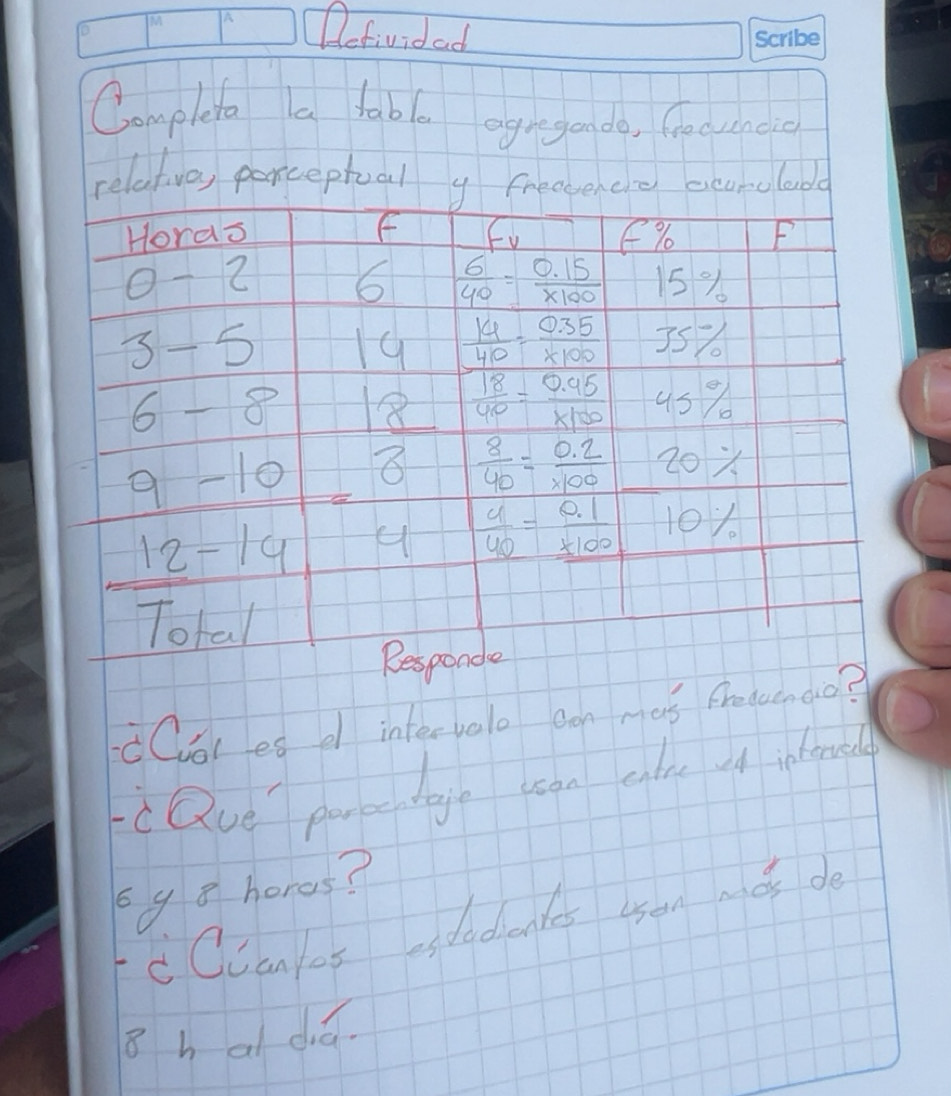 D M A Actividad Scribe
Completa la tabla agregando, frecuencia
relativa, parceptual y frecuencia acumulada
Horas F Fr F% F
0-2 6 6/40 = 0.15/x100 15%
3-5 14 14/40 = 0.35/x100 35%
6-8 18 18/40 = 0.45/x100 45%
9-10 8 8/40 = 0.2/x100 20%
12-14 4 4/40 = 0.1/x100 10%
Total
Responde
-¿Cuál es el intervalo con más frecuencia?
-¿Qué porcentaje usan entre el intervalo
6 y 8 horas?
-¿Cúantos estudiantes usan más de
8 h al día.